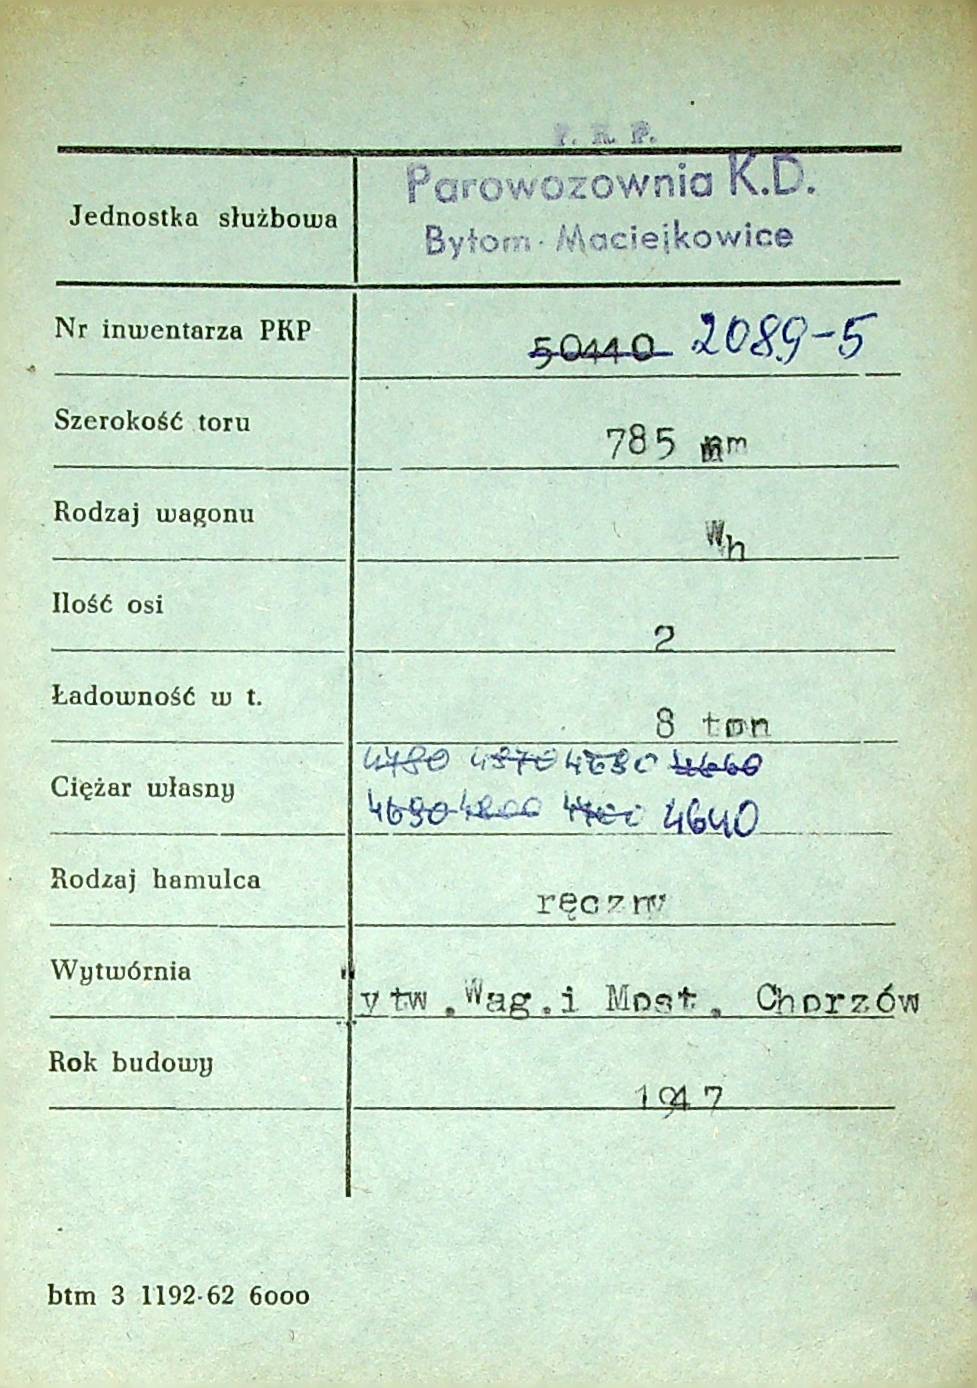 P. K. P.
Parowozownia K.D.
Jednostka służbowa
Bytom-Maciejkowice
Nr inwentarza PKP 50440 2089-5
Szerokość toru 785 mm
Rodzaj wagonu Wh
Ilość osi 2
Ładowność w t. 8 ton
4780 4870 4680 4660
Ciężar własny
4690 4800 4640
Rodzaj hamulca ręczny
Wytwórnia Wytw. Wag. i Most. Chorzów
Rok budowy 1947
btm 3 1192-62 6000